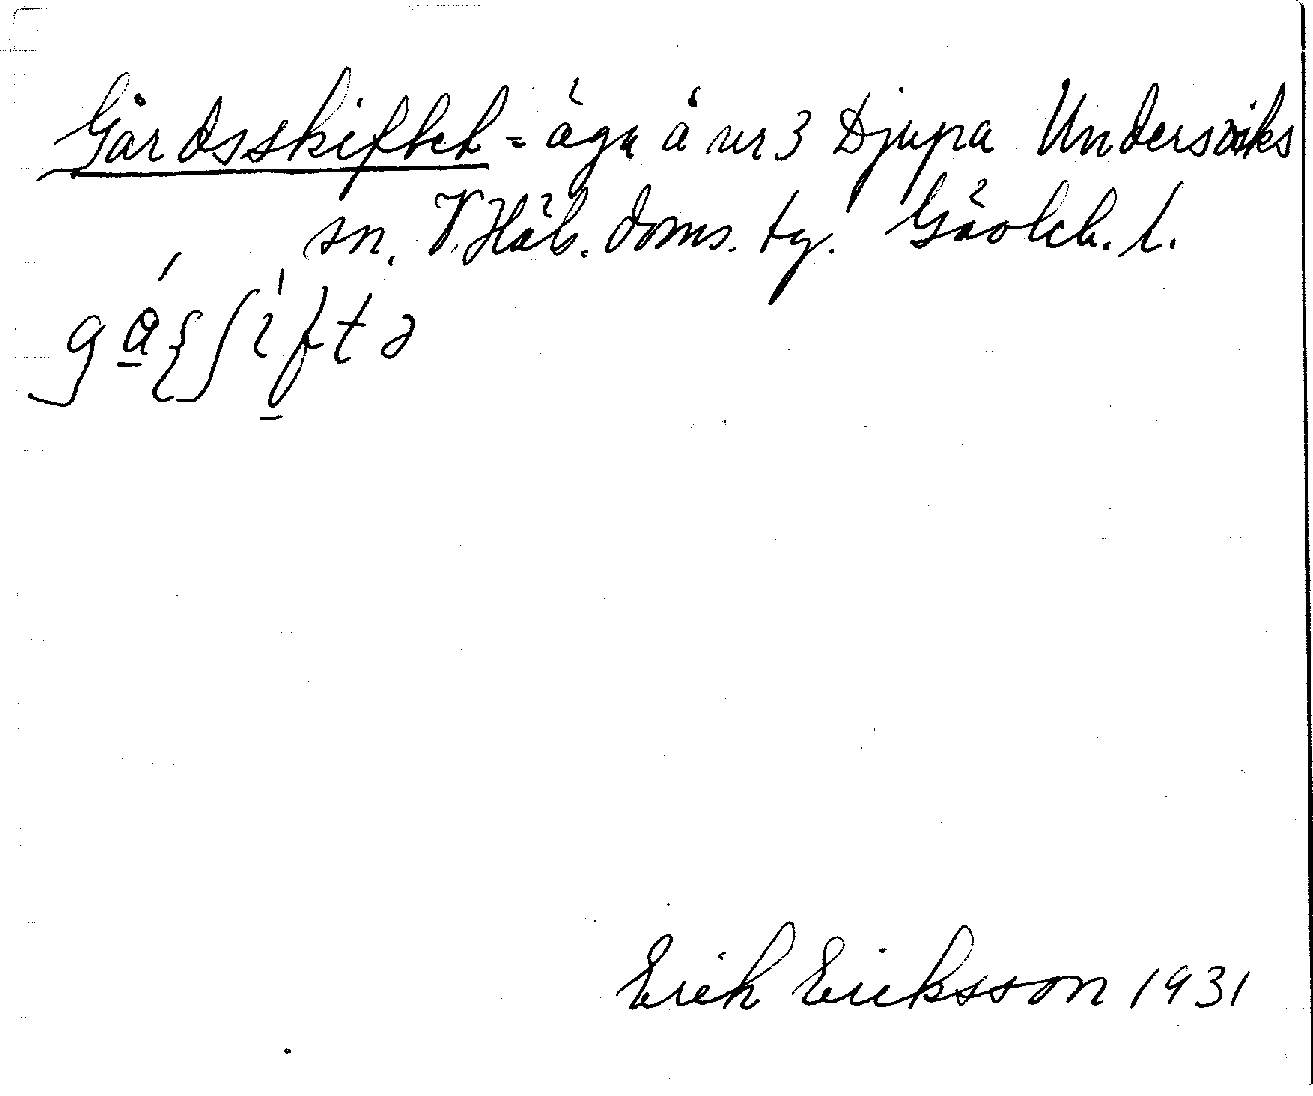 Gårdsskiftet = äga å nr 3 Djupa Undersviks
sn. V. Häls. doms. tg. Gävleb. l.
gå̱ʃı̱ftə
Erik Eriksson 1931